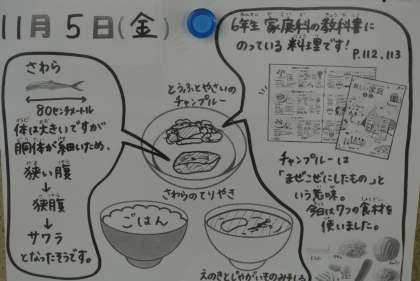 11月5日(金)
さわら
80センチメートル
体は大きいですが
胴体が細いため、
狭い腹
↓
狭腹
↓
サワラ
となったそうです。
とうふとやさいの
チャンプルー
さわらのてりやき
ごはん
えのきとじゃがいものみそしる
6年生 家庭科の教科書に
のっている 料理です!
P.112,113
チャンプルーは
「まぜこぜにしたもの」と
いう意味。
今日は7つの食材を
使いました。